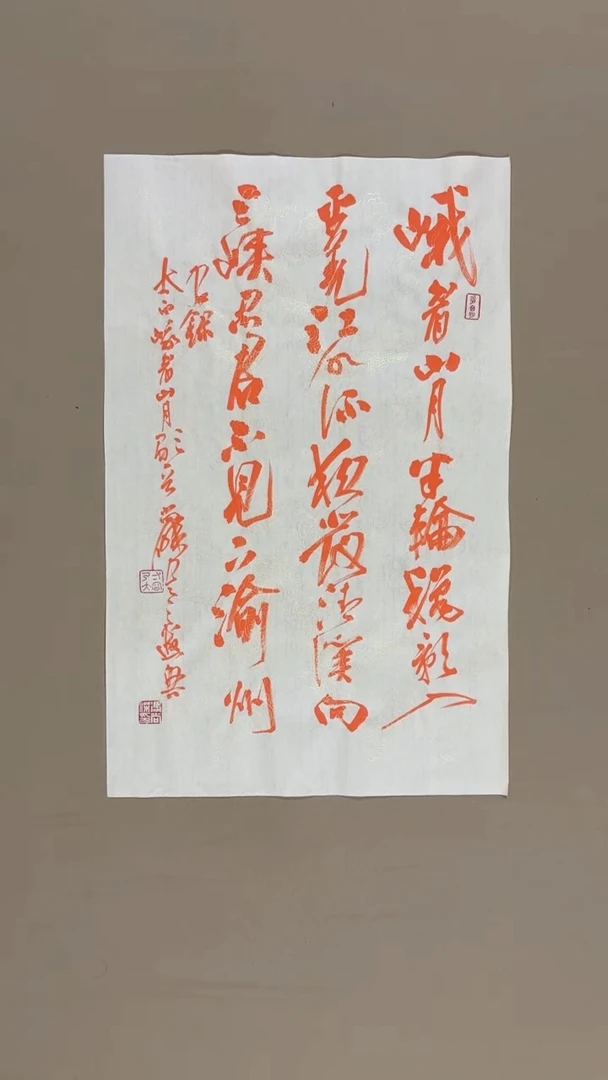 峨眉山月半輪穐影入
平羌江水流夜發清溪向
三峽思君不見下渝州
錄
太白峨眉山月歌